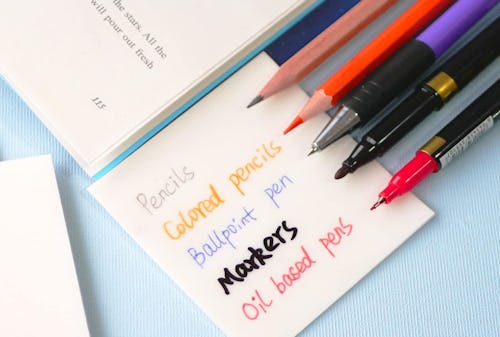 the stars. All the
will pour out fresh
115
Pencils
Colored pencils
Ballpoint pen
Markers
Oil based pens